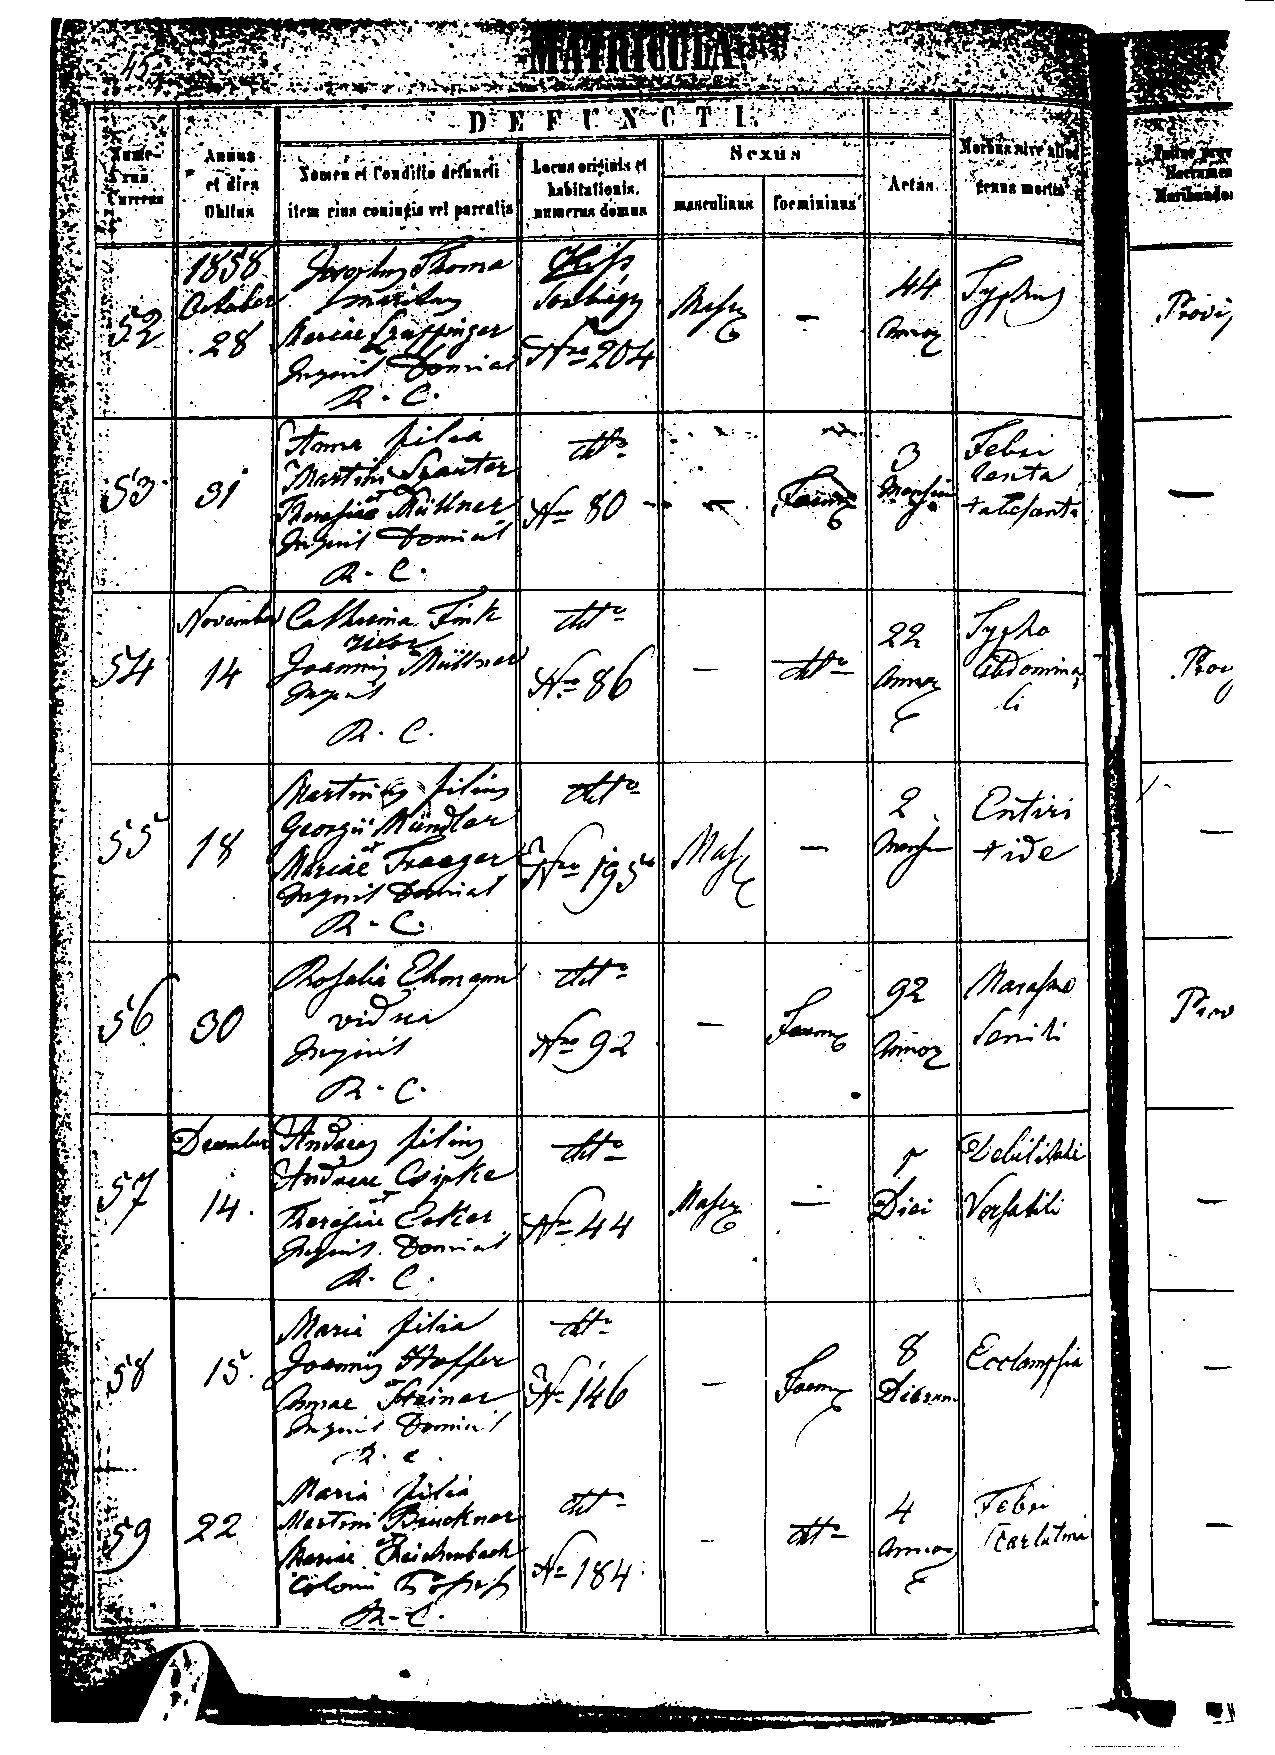 45
MATRICULA
DEFUNCTI
Nume-
rus
Currens
Annus
et dies
Obitus
Nomen et Conditio defuncti
item eius coniugis vel parentis
Locus originis et
habitationis,
numerus domus
Sexus
masculinus
foemininus
Aetas
Morbus sive aliud
genus mortis
52
1858
October
28
Josephus Thoma
maritus
Mariae
Inquil Domiat
R. C.
Nro 204
Masc
—
44
Annor
Typhus
Provis
53
31
Anna filia
Martini Srauter
et
Theresiae Müllner
Inquil Domiat
R. C.
dtto
Nro 80
—
Foem
3
Mensium
Febri
lenta
—
54
November
14
Catharina Fink
uxor
Joannis Müllner
Inquil
R. C.
dtto
Nro 86
—
dtto
22
Annor
Typho
abdomina
li
Prov
55
18
Martinus filius
Georgii Mündler
et
Mariae Traeger
Inquil Domiat
R. C.
dtto
Nro 195
Masc
—
2
Mensium
Enteri
tide
—
56
30
Rosalia Ehmann
vidua
Inquil
R. C.
dtto
Nro 92
—
Foem
92
Annor
Marasmo
Senili
Prov
57
December
14.
Andreas filius
Andreae Csipke
et
Theresiae Ecker
Inquil Domiat
R. C.
dtto
Nro 44
Masc
—
Diei
Debilitate
—
58
15.
Maria filia
Joannis Hoffer
et
Annae Steiner
Inquil Domiat
R. C.
Nro 146
dtto
—
Foem
8
Dierum
Ecclampsia
—
59
22
Maria filia
Martini Bruckner
et
Mariae Reichenbach
Coloni
R. C.
dtto
Nro 184
—
dtto
4
Annor
Febri
Scarlatina
—